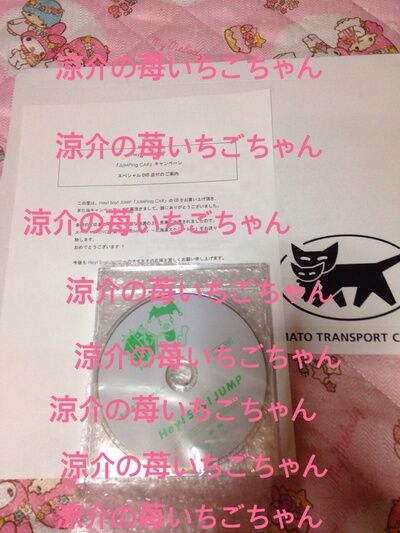 My Melody
涼介の苺いちごちゃん
「JUMPing CAR」キャンペーン
スペシャルDVD送付のご案内
涼介の苺いちごちゃん
この度は、Hey! Say! JUMP「JUMPing CAR」の CD をお買い上げ頂き、
誠にありがとうございました。
涼介の苺いちごちゃん
致します。
おめでとうございます！
今後も Hey! Say! JUMP
宜しくお願い申し上げます。
涼介の苺いちごちゃん
MATO TRANSPORT C
涼介の苺いちごちゃん
Hey! Say! JUMP
涼介の苺いちごちゃん
涼介の苺いちごちゃん
涼介の苺いちごちゃん